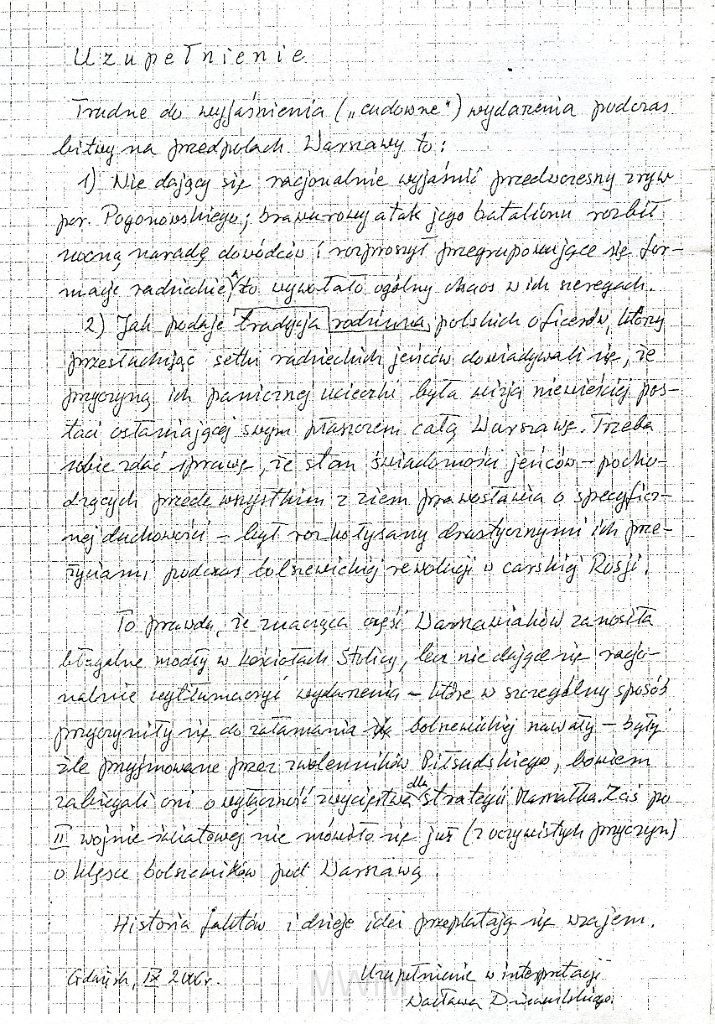 Uzupełnienie
Trudne do wyjaśnienia („cudowne") wydarzenia podczas
bitwy na przedpolach Warszawy to:
1) Nie dający się racjonalnie wyjaśnić przedwczesny zryw
por. Pogonowskiego; brawurowy atak jego batalionu rozbił
nocną naradę dowódców i rozproszył przegrupowujące się for-
macje radzieckie, to wywołało ogólny chaos w ich szeregach.
2) Jak podaje tradycja rodzinna polskich oficerów, którzy
przesłuchując setki radzieckich jeńców dowiadywali się, że
przyczyną ich panicznej ucieczki była wizja niewieściej pos-
taci osłaniającej swym płaszczem całą Warszawę. Trzeba
sobie zdać sprawę, że stan świadomości jeńców – pocho-
dzących przede wszystkim z ziem prawosławia o specyficz-
nej duchowości – był rozkołysany drastycznymi ich prze-
życiami podczas bolszewickiej rewolucji w carskiej Rosji.
To prawda, że znacząca część Warszawiaków zanosiła
błagalne modły w kościołach Stolicy, lecz nie dające się racjo-
nalnie wytłumaczyć wydarzenia – które w szczególny sposób
przyczyniły się do załamania bolszewickiej nawały – były
źle przyjmowane przez zwolenników Piłsudskiego, bowiem
zabiegali oni o wyłączność zwycięstwa dla strategii Marszałka. Zaś po
II wojnie światowej nie mówiło się już (z oczywistych przyczyn)
o klęsce bolszewików pod Warszawą.
Historia faktów i dzieje idei przeplatają się wzajem.
Gdańsk, IX 2006r. Uzupełnienie w interpretacji
Wacława
MWiM